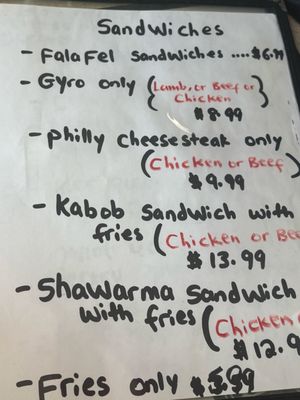 Sandwiches
- Falafel sandwiches ....$6.99
- Gyro only (Lamb, or Beef or
Chicken)
$8.99
- Philly cheesesteak only
(Chicken or Beef)
$9.99
- Kabob sandwich with
fries (Chicken or
$13.99
- Shawarma sandwich
with fries (Chicken
$12.9
- Fries only